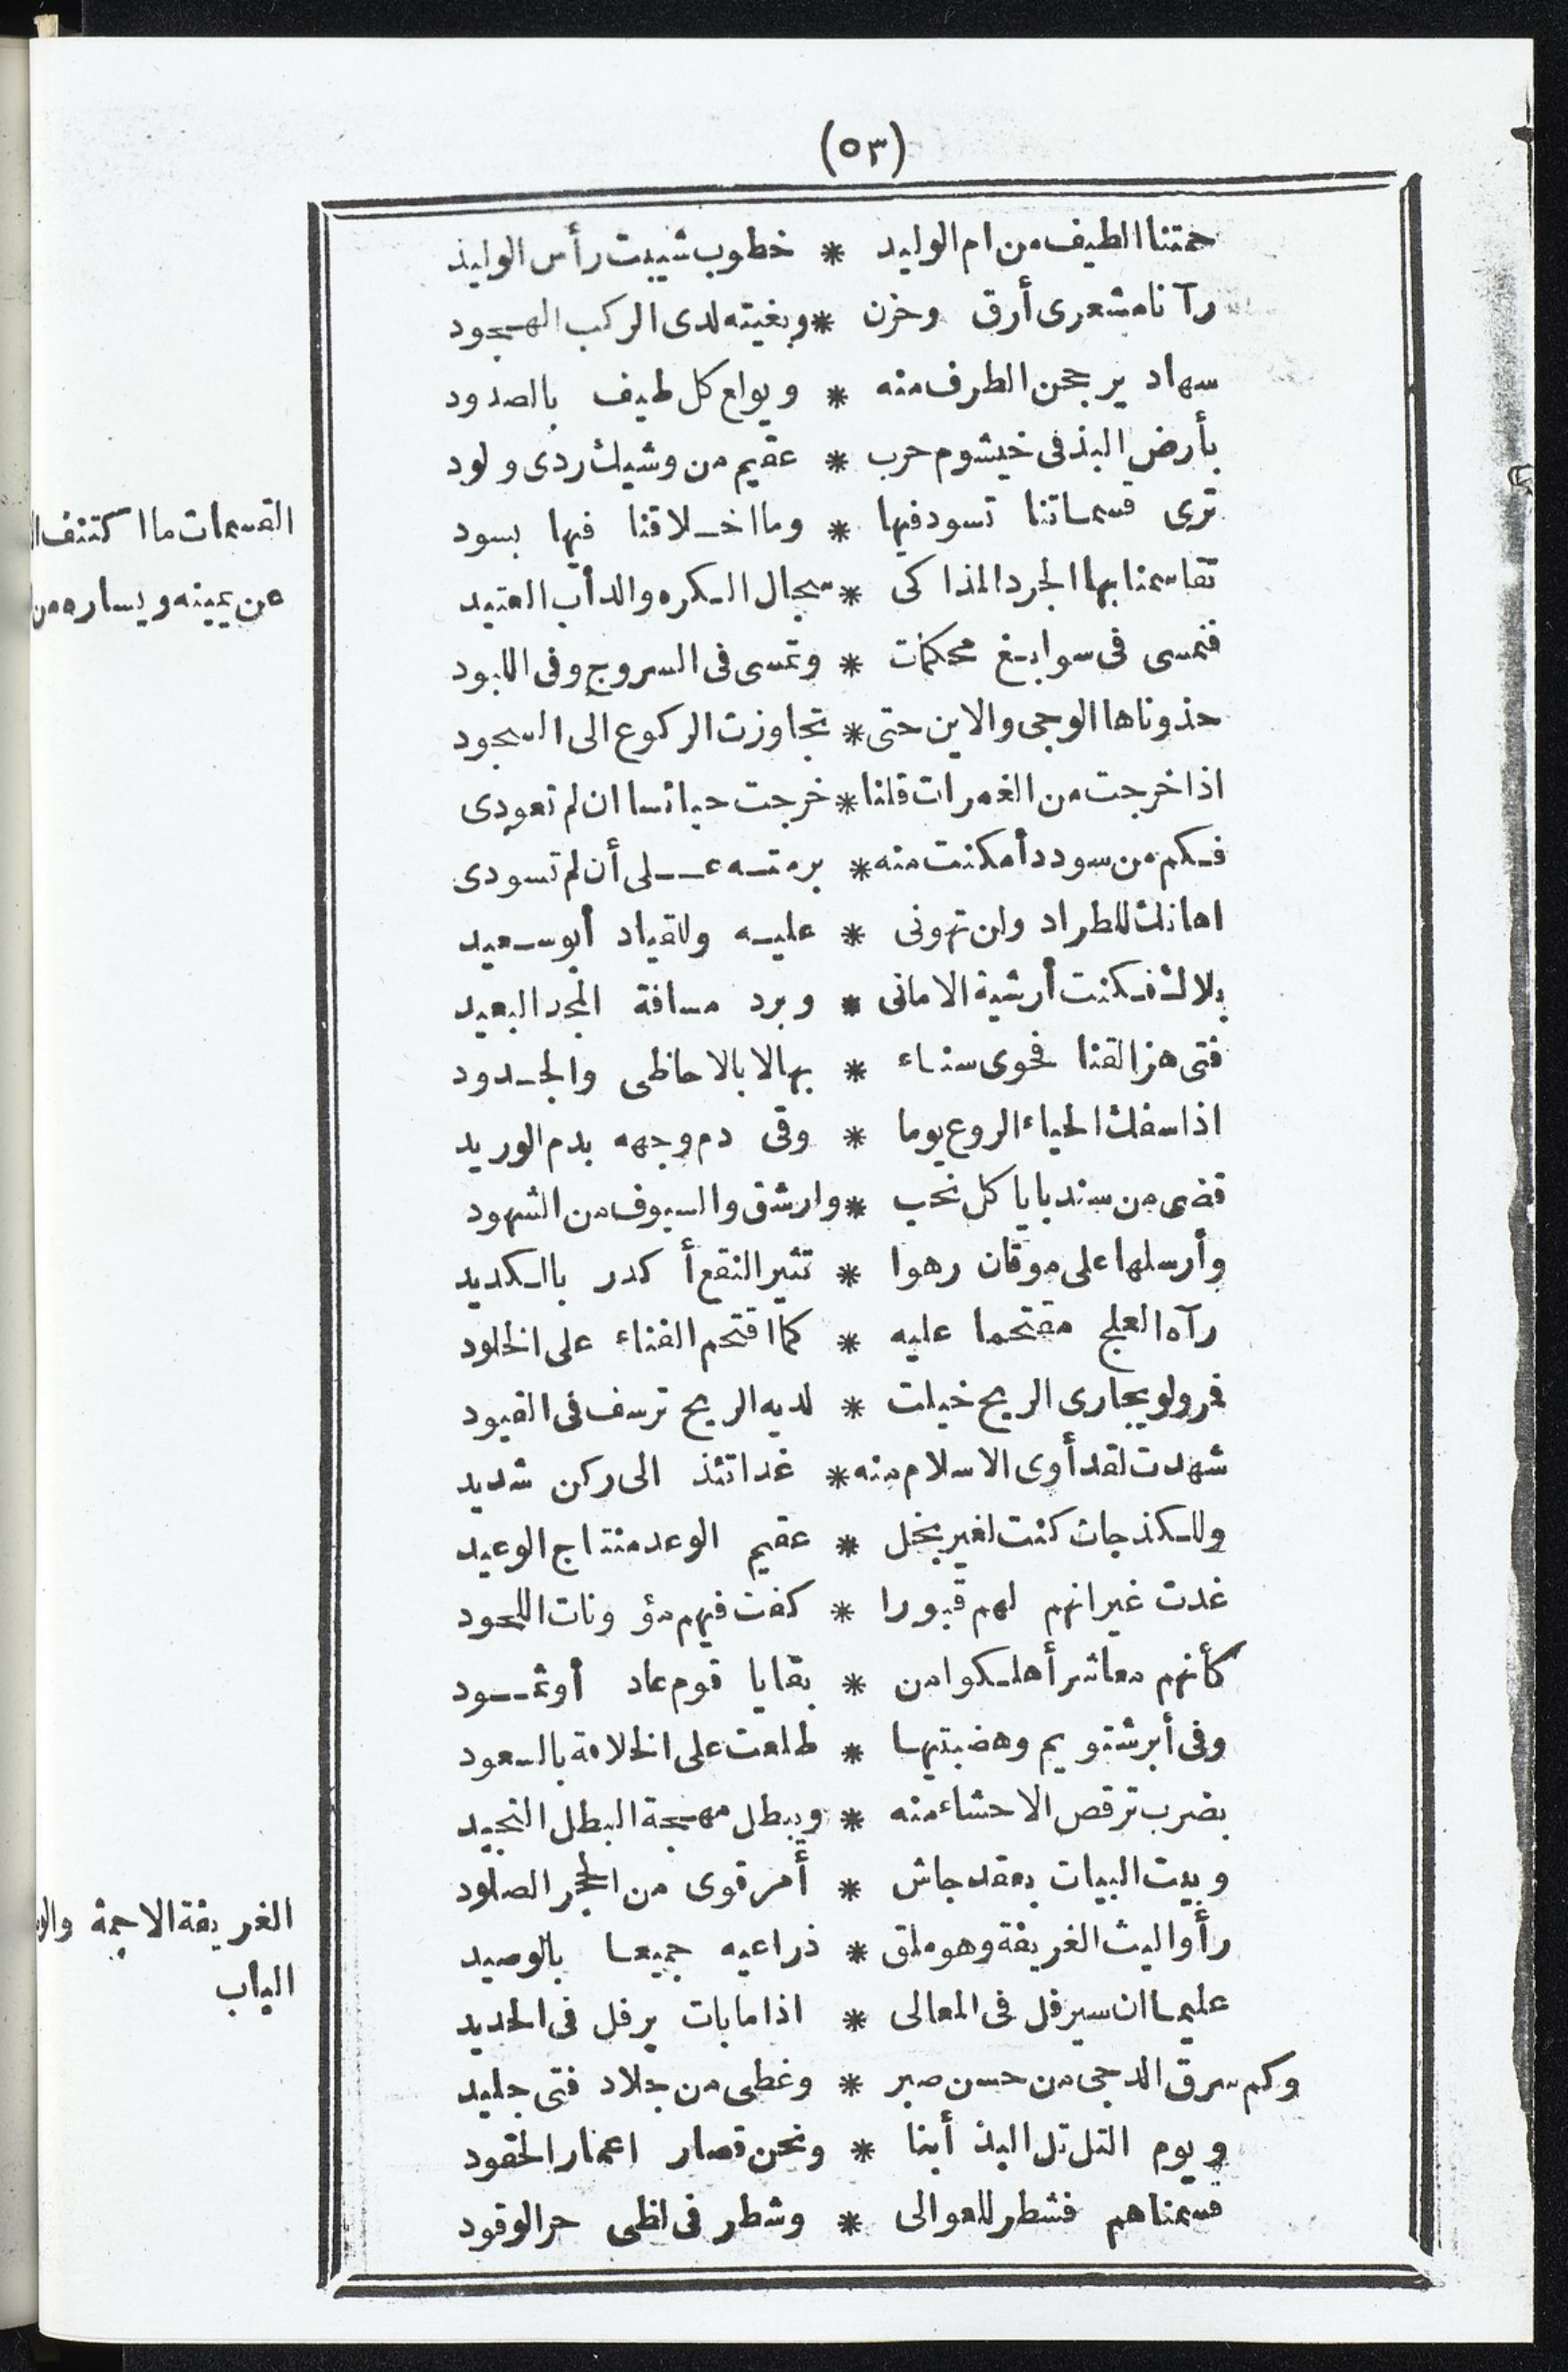 (٥٣)
حمتنا الطيف من ام الوليد * خطوب شيبت رأس الوليد
رآنا مشعرى أرق وحزن * وبغيته لدى الركب الهجود
سهاد يرجحن الطرف منه * ويولع كل طيف بالصدود
بأرض البذ فى خيشوم حرب * عقيم من وشيك ردى ولود
ترى قسماتنا تسود فيها * وما اخلاقنا فيها بسود
تقاسمنا بها الجرد المذاكى * سجال الكره والدأب العتيد
فنمسى فى سوابغ محكمات * وتمسى فى السروج وفى اللبود
حذوناها الوجى والاين حتى * تجاوزت الركوع الى السجود
اذا خرجت من الغمرات قلنا * خرجت حبائسا ان لم تعودى
فكم من سودد أمكنت منه * برمته على أن لم تسودى
اهانك للطراد ولن تهونى * عليه وللقياد أبو سعيد
بلاك فكنت أرشية الامانى * وبرد مسافة المجد البعيد
فتى هز القنا فحوى سناء * بها لا بالاحاظى والجدود
اذا سفك الحياء الروع يوما * وقى دم وجهه بدم الوريد
قضى من سندبايا كل نحب * وارشق والسيوف من الشهود
وأرسلها على موقان رهوا * تثير النقع أكدر بالكديد
رآه العلج مقتحما عليه * كما اقتحم الفناء على الخلود
فر ولو يجارى الريح خيلت * لديه الريح ترسف فى القيود
شهدت لقد أوى الاسلام منه * غداتئذ الى ركن شديد
وللكذجات كنت لغير بخل * عقيم الوعد منتاج الوعيد
غدت غيرانهم لهم قبورا * كفت فيهم مؤونات اللحود
كأنهم معاشر أهلكوا من * بقايا قوم عاد أو ثمود
وفى أبرشتويم وهضبتيها * طلعت على الخلافة بالسعود
بضرب ترقص الاحشاء منه * ويبطل مهجة البطل النجيد
وبيت البيات بعقد جاش * أمر قوى من الحجر الصلود
رأوا ليث الغريفة وهو ملق * ذراعيه جميعا بالوصيد
عليما ان سيرفل فى المعالى * اذا ما بات يرفل فى الحديد
وكم سرق الدجى من حسن صبر * وغطى من جلاد فتى جليد
ويوم التل تل البذ أبنا * ونحن قصار اعمار الحقود
قسمناهم فشطر للعوالى * وشطر فى لظى حر الوقود
القسمات ما اكتنف
من يمينه ويساره من
الغريفة الاجمة
الباب